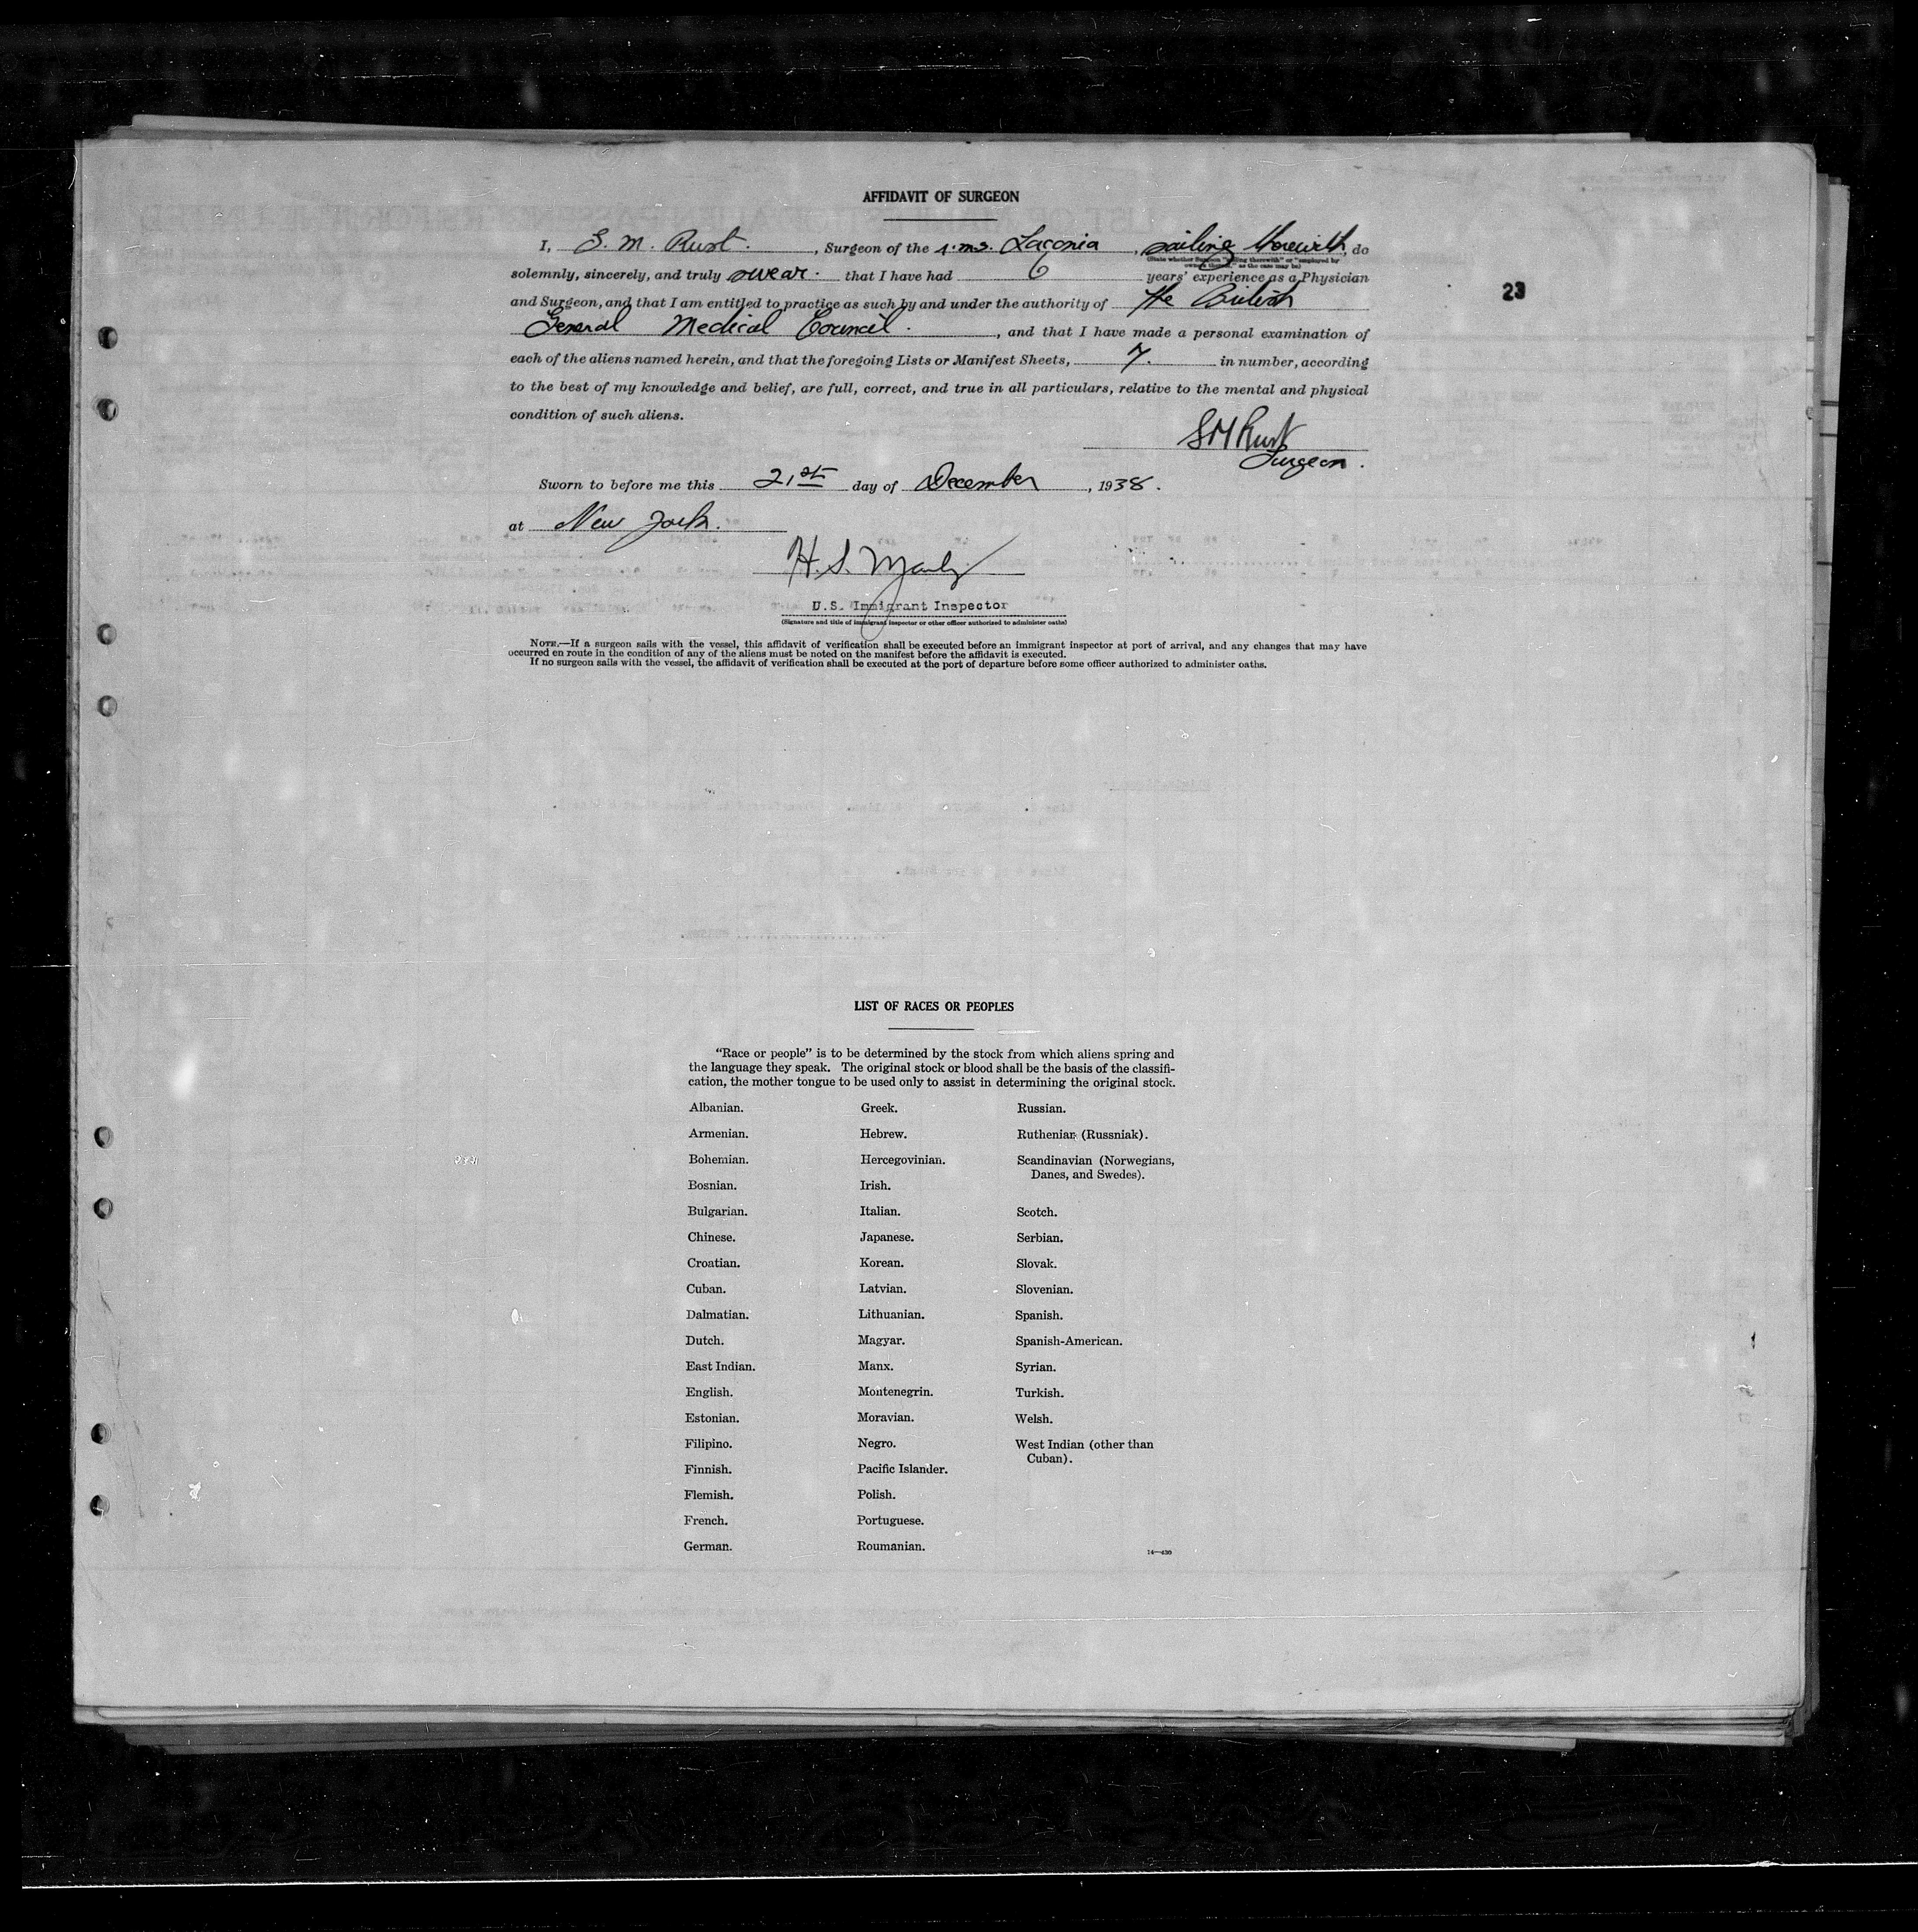 AFFIDAVIT OF SURGEON
I, S. M. Rust. , Surgeon of the s.m.s. Laconia , sailing therewith, do
(State whether Surgeon "sailing therewith" or "employed by
owners thereof," as the case may be)
solemnly, sincerely, and truly swear. that I have had 6 years' experience as a Physician
and Surgeon, and that I am entitled to practice as such by and under the authority of the British
23
General Medical Council. , and that I have made a personal examination of
each of the aliens named herein, and that the foregoing Lists or Manifest Sheets, 7. in number, according
to the best of my knowledge and belief, are full, correct, and true in all particulars, relative to the mental and physical
condition of such aliens.
S M Rust
Surgeon.
Sworn to before me this 21st day of December , 1938.
at New York.
H. S.
U.S. Immigrant Inspector
(Signature and title of immigrant inspector or other officer authorized to administer oaths)
NOTE.—If a surgeon sails with the vessel, this affidavit of verification shall be executed before an immigrant inspector at port of arrival, and any changes that may have
occurred en route in the condition of any of the aliens must be noted on the manifest before the affidavit is executed.
If no surgeon sails with the vessel, the affidavit of verification shall be executed at the port of departure before some officer authorized to administer oaths.
LIST OF RACES OR PEOPLES
"Race or people" is to be determined by the stock from which aliens spring and
the language they speak. The original stock or blood shall be the basis of the classifi-
cation, the mother tongue to be used only to assist in determining the original stock.
Albanian.
Armenian.
Bohemian.
Bosnian.
Bulgarian.
Chinese.
Croatian.
Cuban.
Dalmatian.
Dutch.
East Indian.
English.
Estonian.
Filipino.
Finnish.
Flemish.
French.
German.
Greek.
Hebrew.
Hercegovinian.
Irish.
Italian.
Japanese.
Korean.
Latvian.
Lithuanian.
Magyar.
Manx.
Montenegrin.
Moravian.
Negro.
Pacific Islander.
Polish.
Portuguese.
Roumanian.
Russian.
Ruthenian (Russniak).
Scandinavian (Norwegians,
Danes, and Swedes).
Scotch.
Serbian.
Slovak.
Slovenian.
Spanish.
Spanish-American.
Syrian.
Turkish.
Welsh.
West Indian (other than
Cuban).
14—430